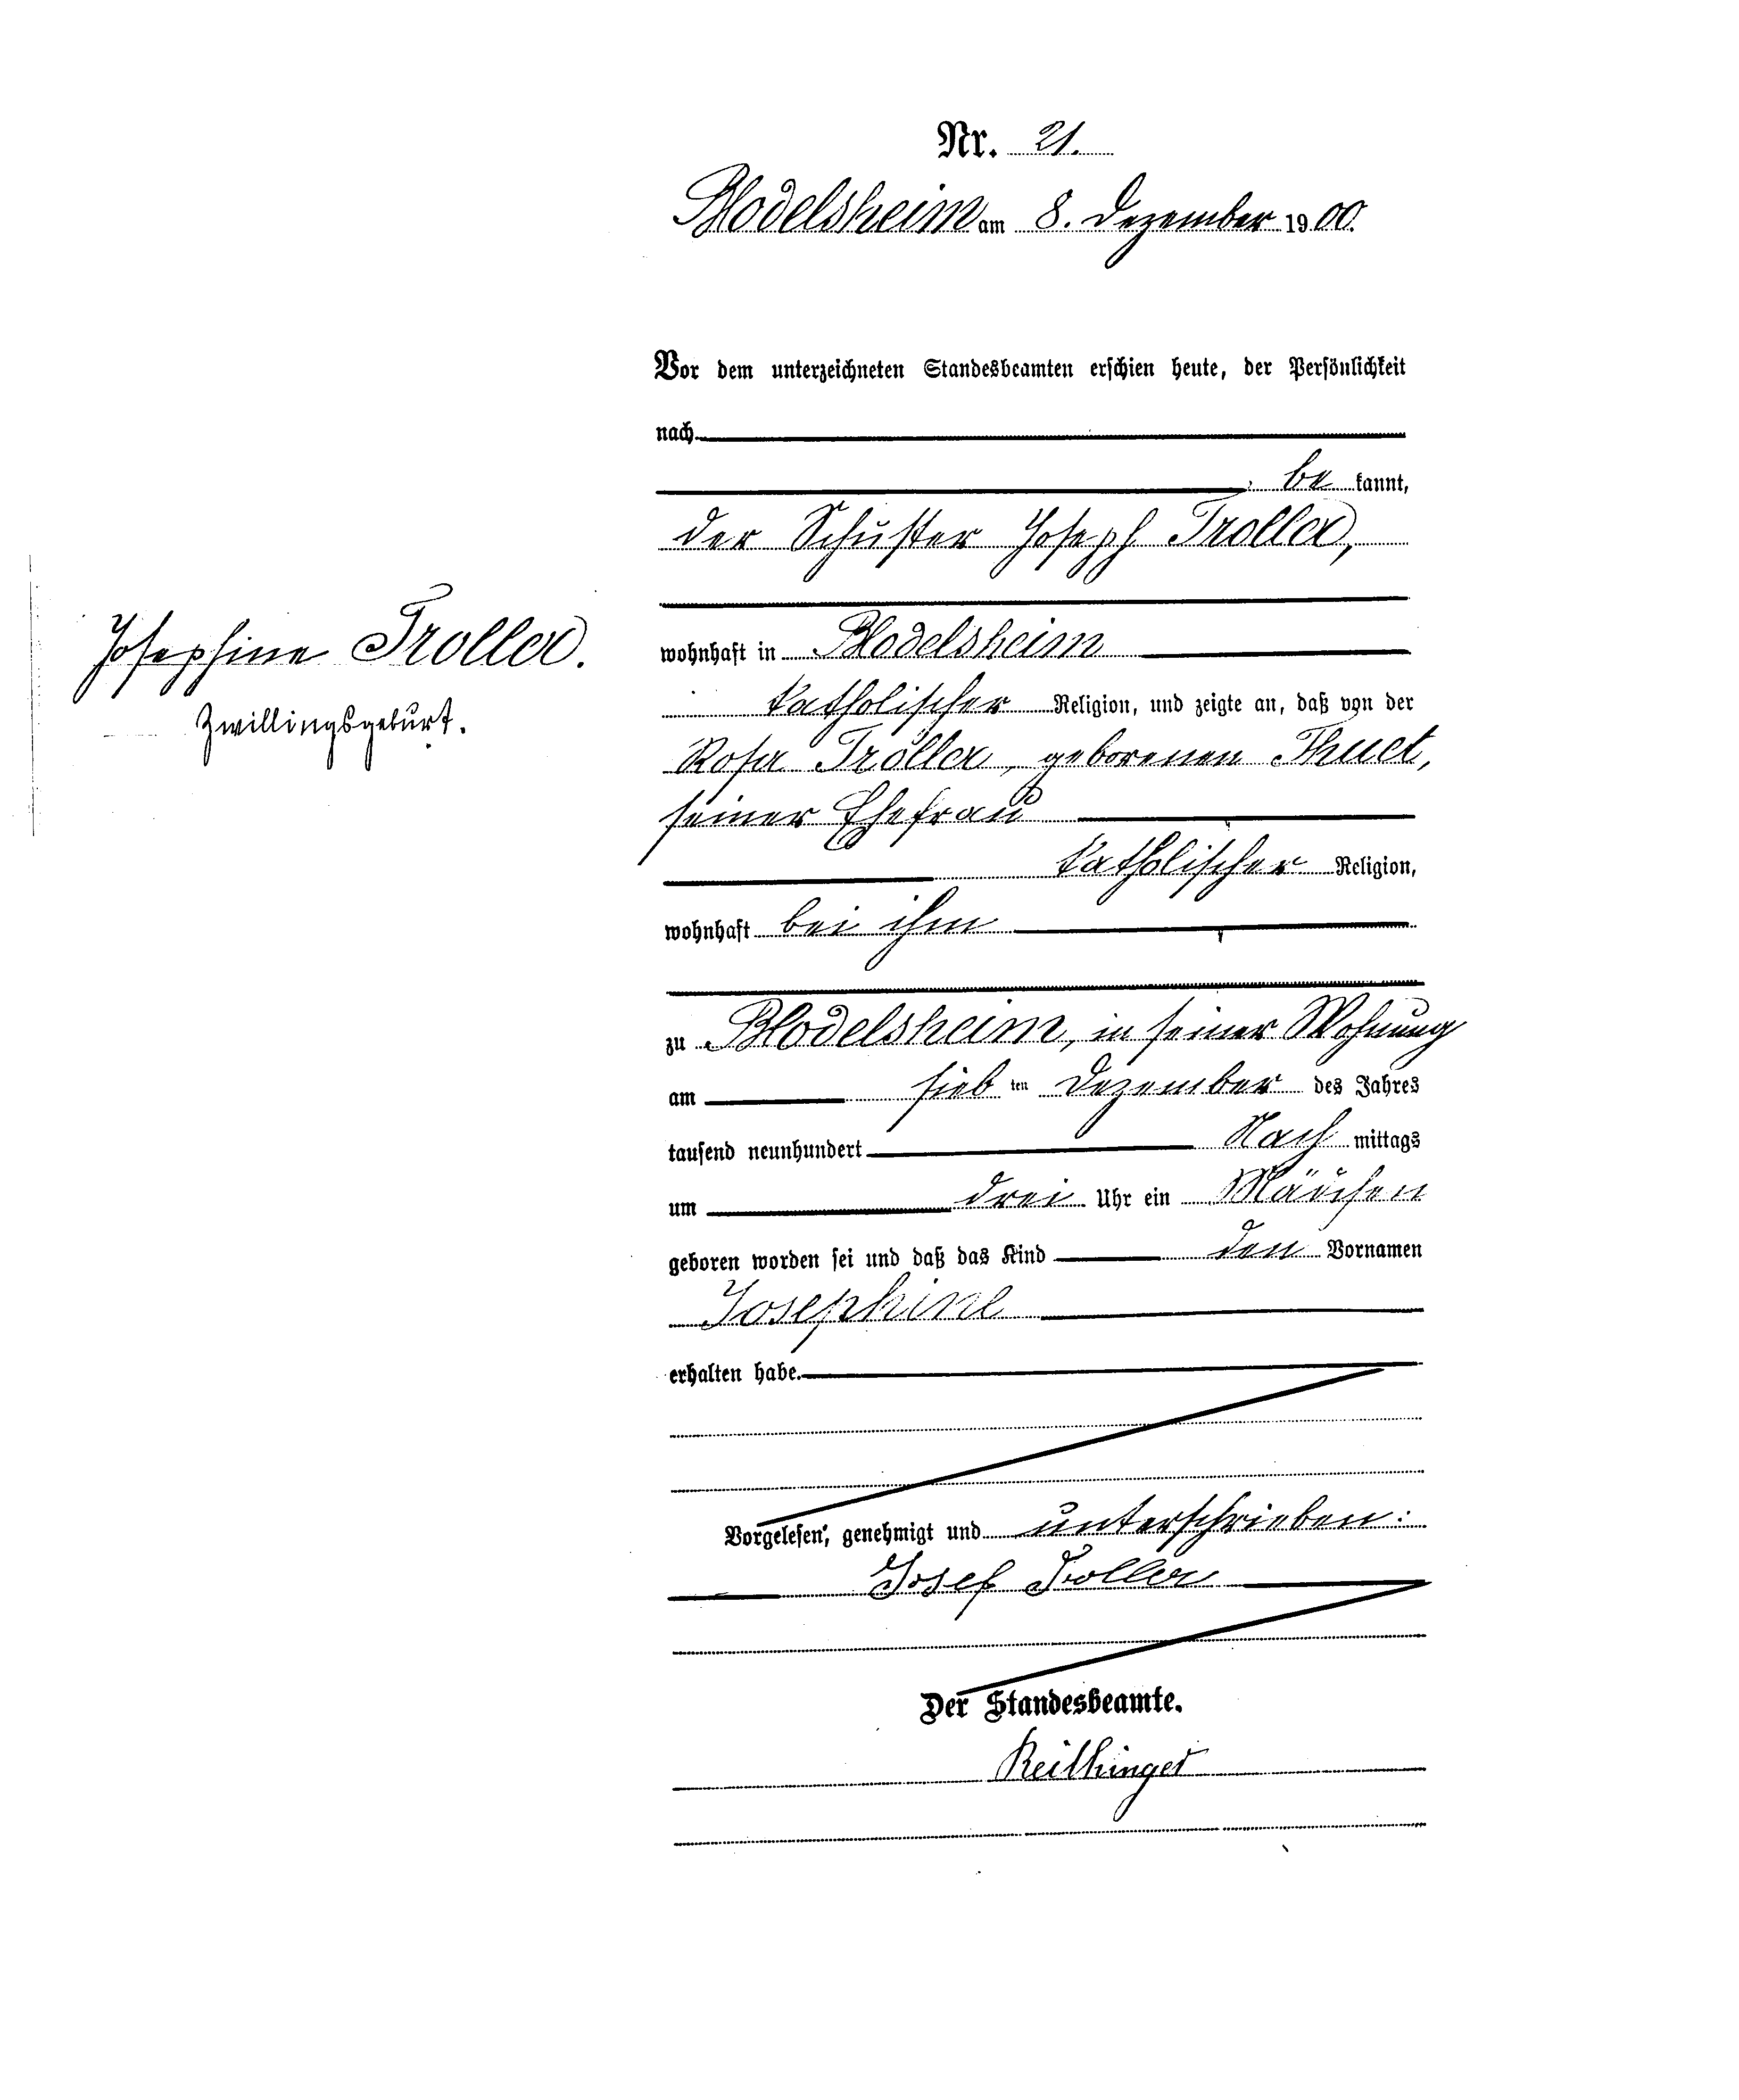 Nr. 21.
Blodelsheim am 8. Dezember 1900.
Vor dem unterzeichneten Standesbeamten erschien heute, der Persönlichkeit
nach
be kannt,
der Schuster Joseph Troller,
Josephine Troller.
Zwillingsgeburt.
wohnhaft in Blodelsheim
katholischer Religion, und zeigte an, daß von der
Rosa Troller, geborenen Thuet,
seiner Ehefrau
katholischer Religion,
wohnhaft bei ihm
zu Blodelsheim, in seiner Wohnung
am sieb ten Dezember des Jahres
tausend neunhundert Nach mittags
um drei Uhr ein Mädchen
geboren worden sei und daß das Kind den Vornamen
Josephine
erhalten habe.
Vorgelesen, genehmigt und unterschrieben:
Josef Troller
Der Standesbeamte.